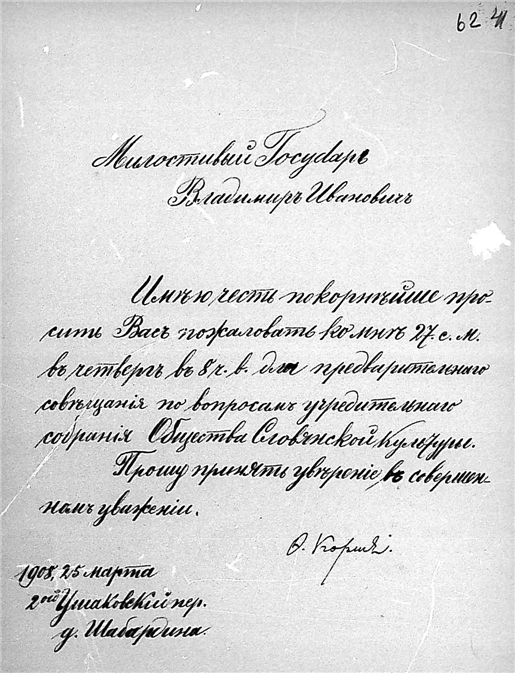 62 41
Милостивый Государь
Владимиръ Ивановичъ
Имѣю честь покорнѣйше про-
сить Васъ пожаловать ко мнѣ 27. с. м.
въ четвергъ въ 8 ч. в. для предварительнаго
совѣщанія по вопросамъ учредительнаго
собранія Общества Словѣнской Культуры.
Прошу принять увѣреніе въ совершен-
номъ уваженіи.
Ѳ. Коршъ.
1908, 25 марта
2ой Ушаковскій пер.
д. Шабардина.